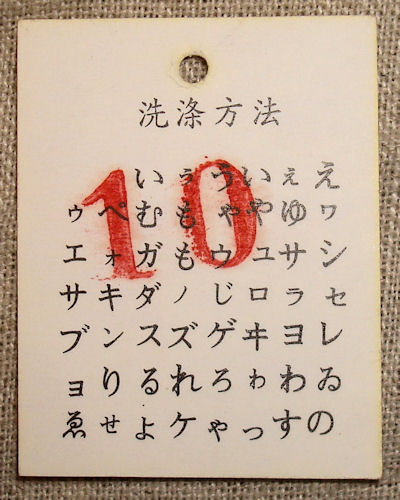 洗涤方法
えヮシセレゐの
ぇゆサラヨわす
いやュロヰゎっ
うゃウじゲろゃ
ぅももノズれケ
いむガダスるよ
ペォキンりせ
ゥエサブョゑ
10